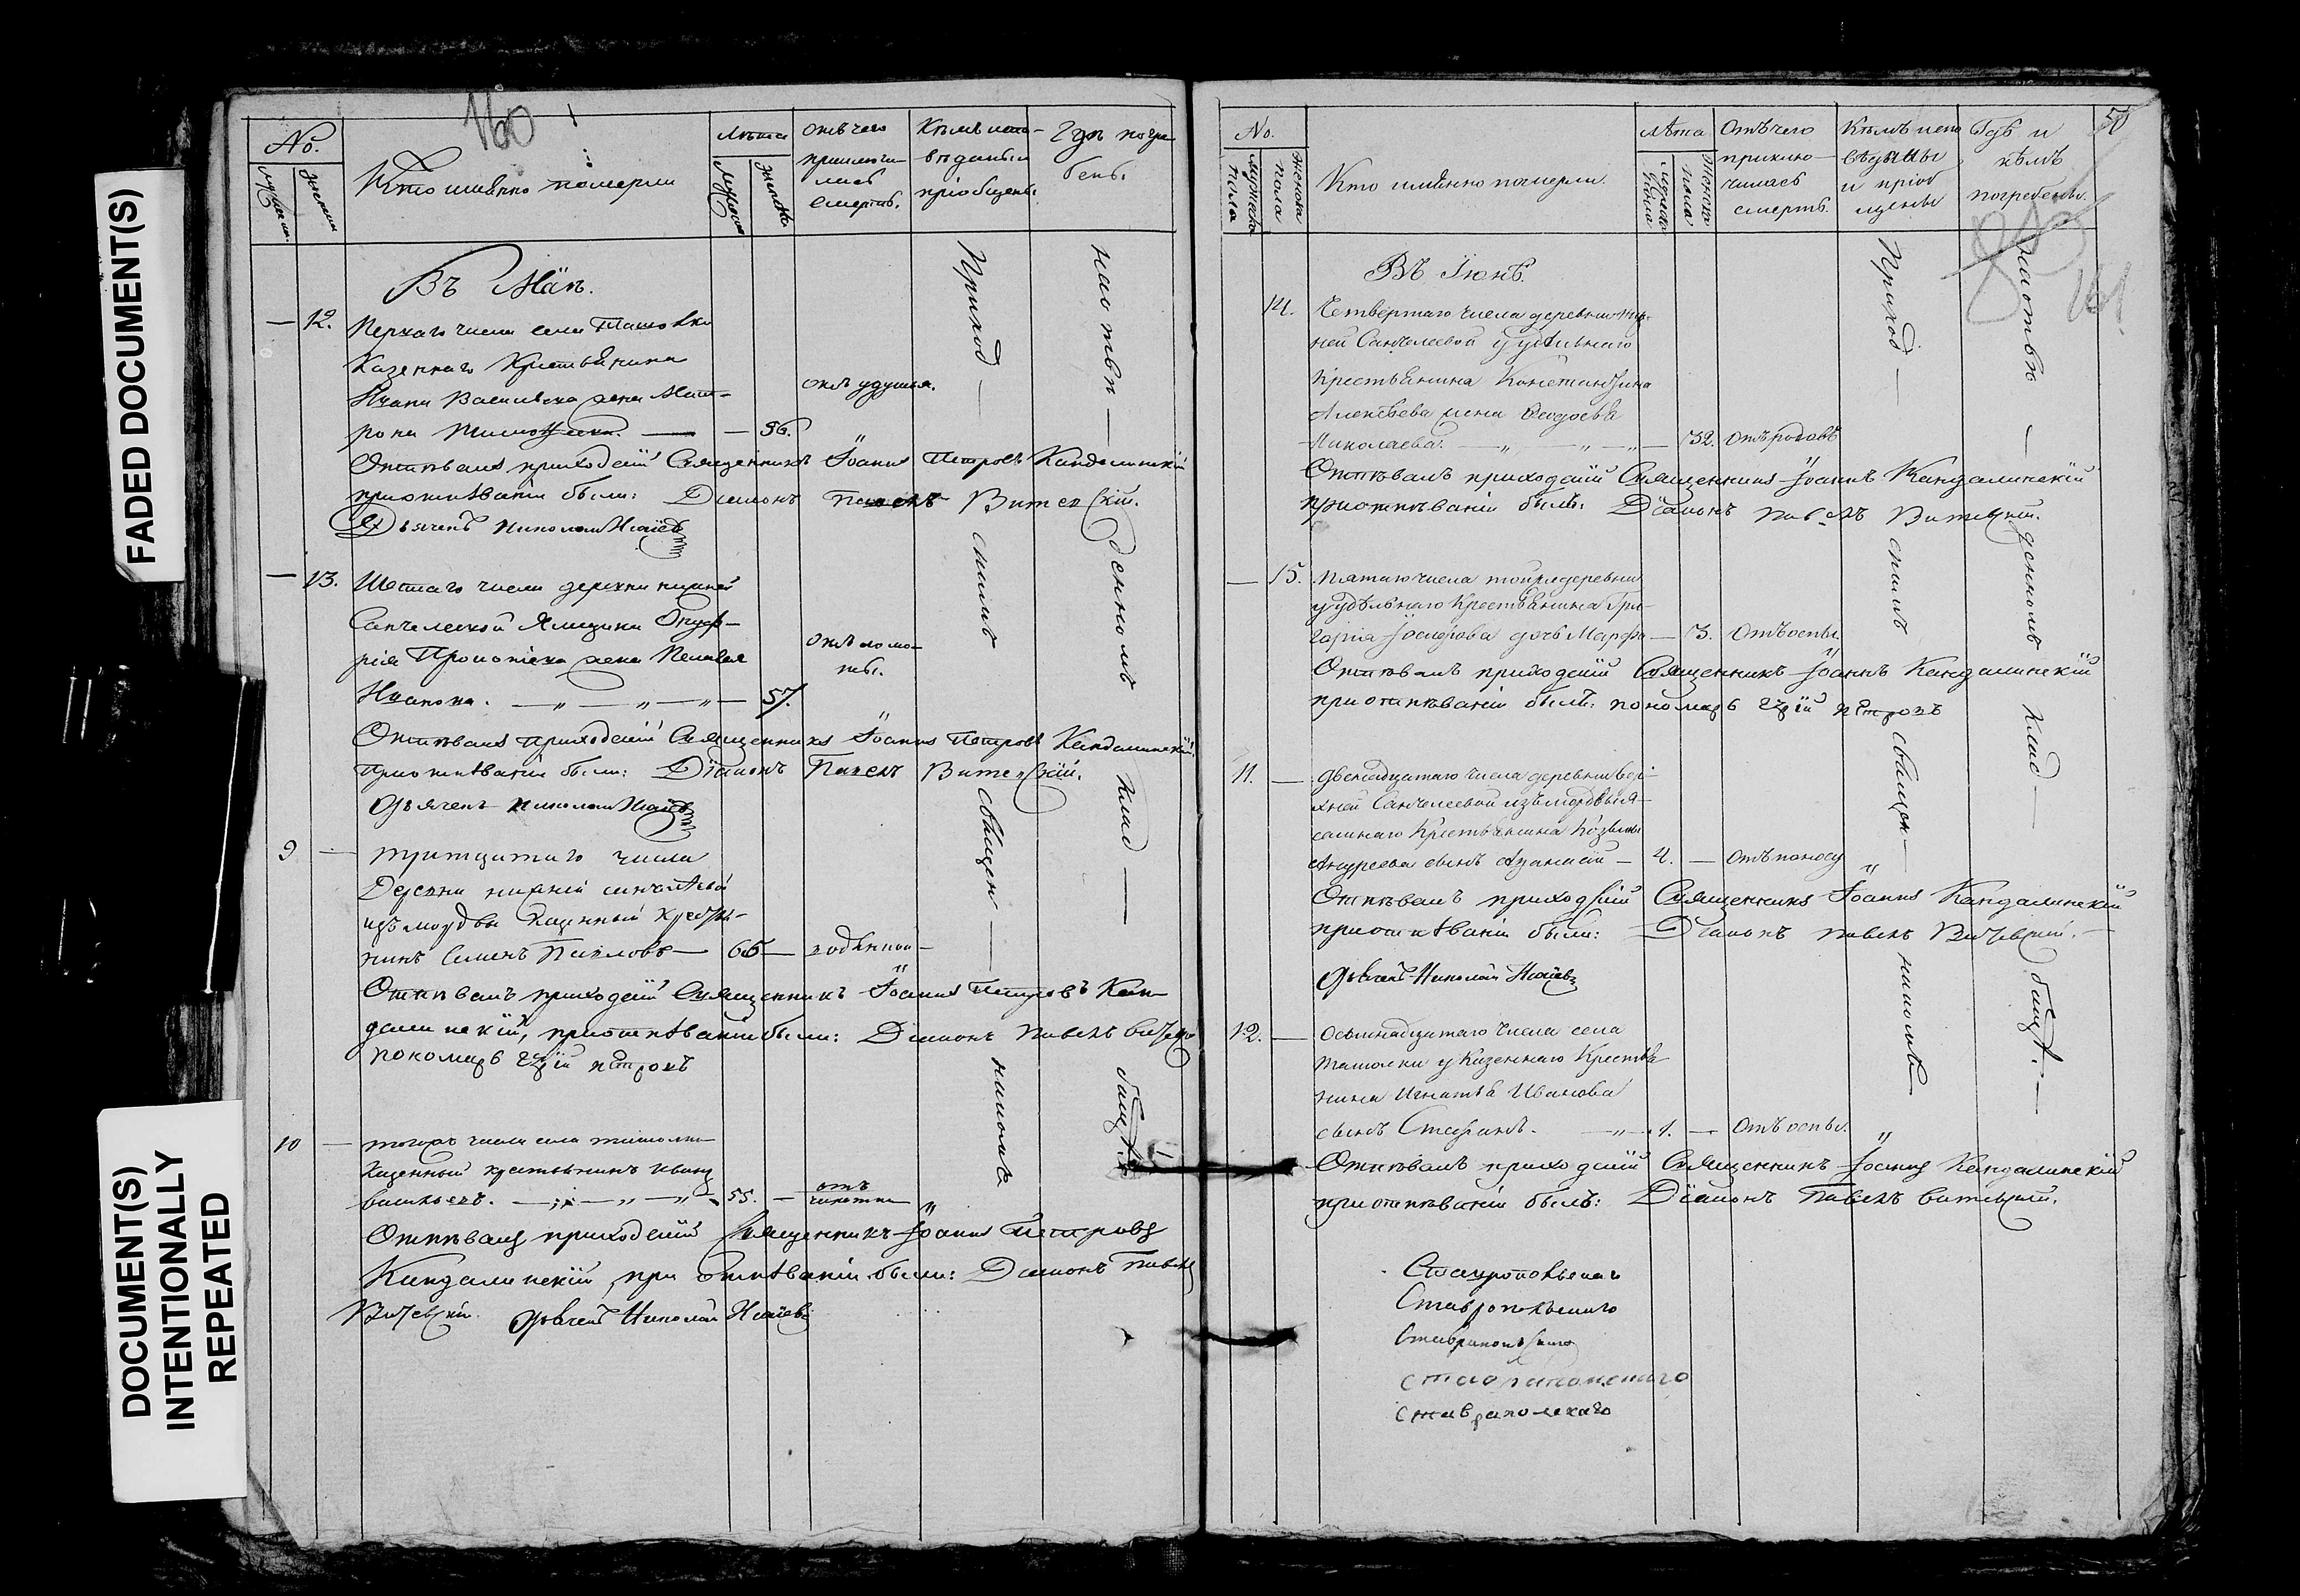 FADED DOCUMENT(S)
DOCUMENT(S)
INTENTIONALLY
REPEATED
160
No.
мужеска.
женска
Кто имянно померли
Лѣта
Мужеска
женска
отъ чего
приключи-
лась
смерть.
Кѣмъ испо-
вѣданы и
пріобщены.
Гдѣ погре-
бены.
Въ Маіи.
— 12. Перваго числа села Ташолки
Казеннаго Крестьянина
Ивана Васильева жена Мат-
рона — — 56. отъ удушья.
Отпѣвалъ приходскій Священникъ Іоаннъ Петровъ Кандалинскій
при отпѣваніи были: Діаконъ Павелъ Витевскій.
Дьячекъ Николай Исаіевъ
— 13. Шестаго числа деревни нижней
Санчелеевой Ямщика Онуф-
рія Прокопіева жена Пелагея
Иванова. — „ — „ — „ — 57. отъ ломо-
ты.
Отпѣвалъ приходскій Священникъ Іоаннъ Петровъ Кандалинскій.
При отпѣваніи были: Діаконъ Павелъ Витевскій.
Дьячекъ Николай Исаіевъ
9 — тритцатаго числа
Деревни нижней санчелѣевой
изъ мордвы Казенный крестья-
нинъ Семенъ Павловъ — 65 —
Отпѣвалъ приходскій Священникъ Іоаннъ Петровъ Кан-
далинскій, при отпѣваніи были: Діаконъ Павелъ
пономарь Петровъ
10 — тогожъ числа села ташолки
Казенный крестьянинъ Иванъ
васильевъ. — „ — „ — „ 55. — отъ
чихотки
Отпѣвалъ приходскій Священникъ Іоаннъ Петровъ
Кандалинскій, при отпѣваніи были: Діаконъ Павелъ
Витевскій Дьячекъ Николай Исаіевъ
Приход — скимъ священ — никомъ
На отвѣ — денномъ клад — бищѣ.
50
161
No.
Мужеска
пола
Женска
пола
Кто имянно померли.
Лѣта
Мужеска
пола
Женска
пола
Отъ чего
приклю-
чилась
смерть.
Кѣмъ испо
вѣданы
и пріоб
щены
Гдѣ и
кѣмъ
погребены.
Въ Іюнѣ.
14. Четвертаго числа деревни Ниж-
ней Санчелеевой у удѣльнаго
крестьянина Константина
Алексѣева жена Федосья
Николаева. — „ — „ — „ — 32. отъ родовъ
Отпѣвалъ приходскій Священникъ Іоаннъ Кандалинскій
при отпѣваніи былъ: Діаконъ Павелъ Витевскій.
— 15. Пятаго числа той же деревни
у удѣльнаго Крестьянина Гри-
горія Іосифова дочь Марфа — 3. Отъ оспы.
Отпѣвалъ приходскій Священникъ Іоаннъ Кандалинскій
при отпѣваніи былъ: пономарь Петровъ
11. — двенадцатаго числа деревни вер-
хней Санчелеевой изъ мордвы я-
сашнаго Крестьянина Козьмы
Андреева сынъ Афанасій — 4. — Отъ поносу
Отпѣвалъ приходскій Священникъ Іоаннъ Кандалинскій
при отпѣваніи были: Діаконъ Павелъ Витевскій. —
Дьячекъ Николай Исаіевъ
12. — Осьмнадцатаго числа села
Ташолки у Казеннаго Крестья
нина Игнатья Иванова
сынъ Стефанъ. — „ — 1. — Отъ оспы.
Отпѣвалъ приходскій Священникъ Іоаннъ Кандалинскій
при отпѣваніи былъ: Діаконъ Павелъ Витевскій.
Приход — скимъ священ — никомъ
На отвѣ — денномъ клад — бищѣ. —
Ставропольскаго
Ставропольскаго
Ставропольскаго
Ставропольскаго
Ставропольскаго